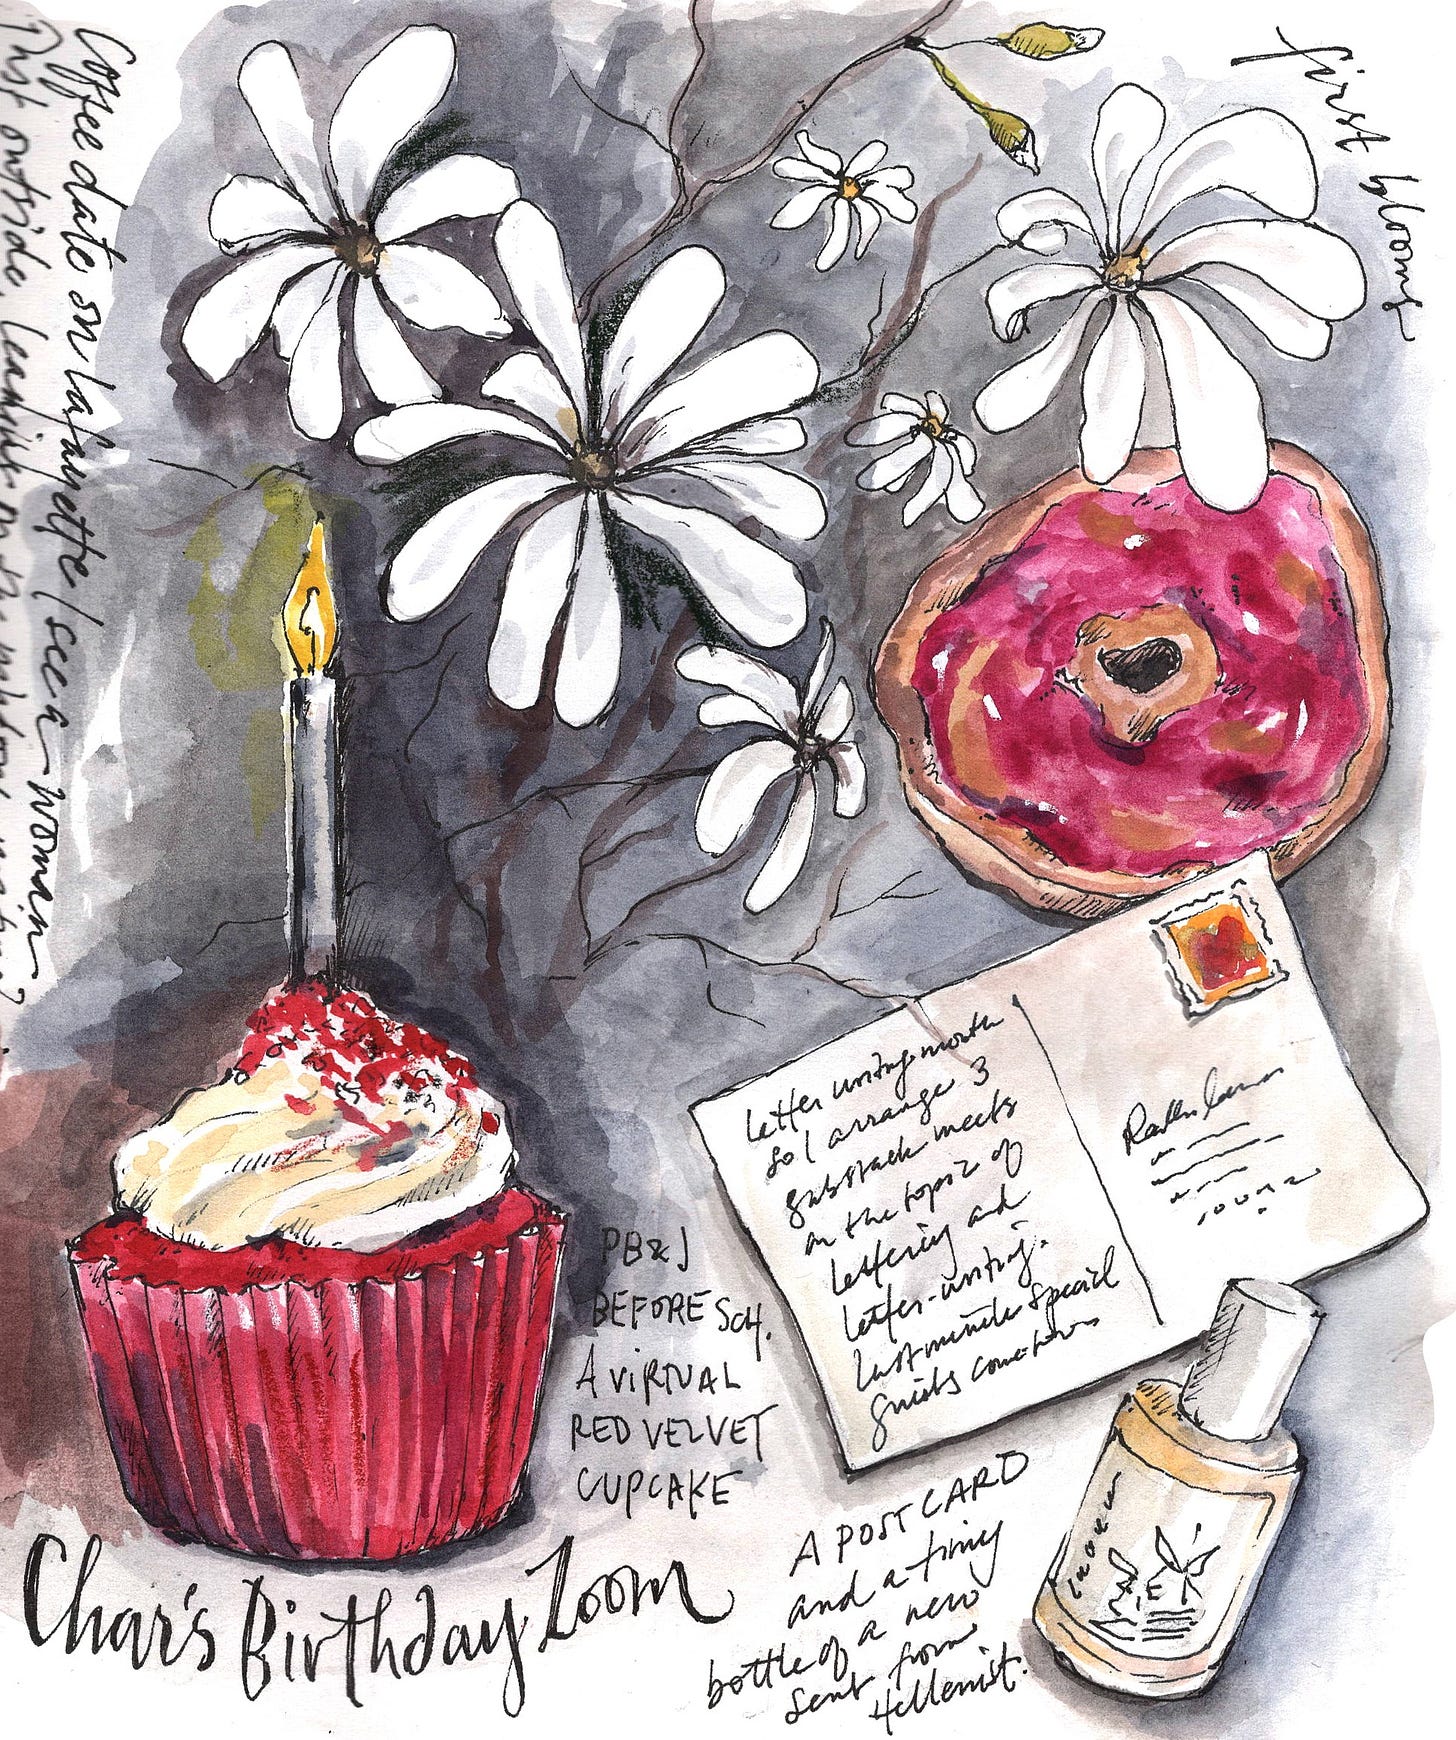 first blooms
Coffee date on Lafayette / seen a woman
just outside, leaning on the
PB & J
BEFORE SCH.
A VIRTUAL
RED VELVET
CUPCAKE
Letter writing month
so I arrange 3
substack meets
on the topic of
lettering and
letter-writing.
Last minute special
guests
Char's Birthday Zoom
A POSTCARD
and a tiny
bottle of a new
sent from
Hellenist.